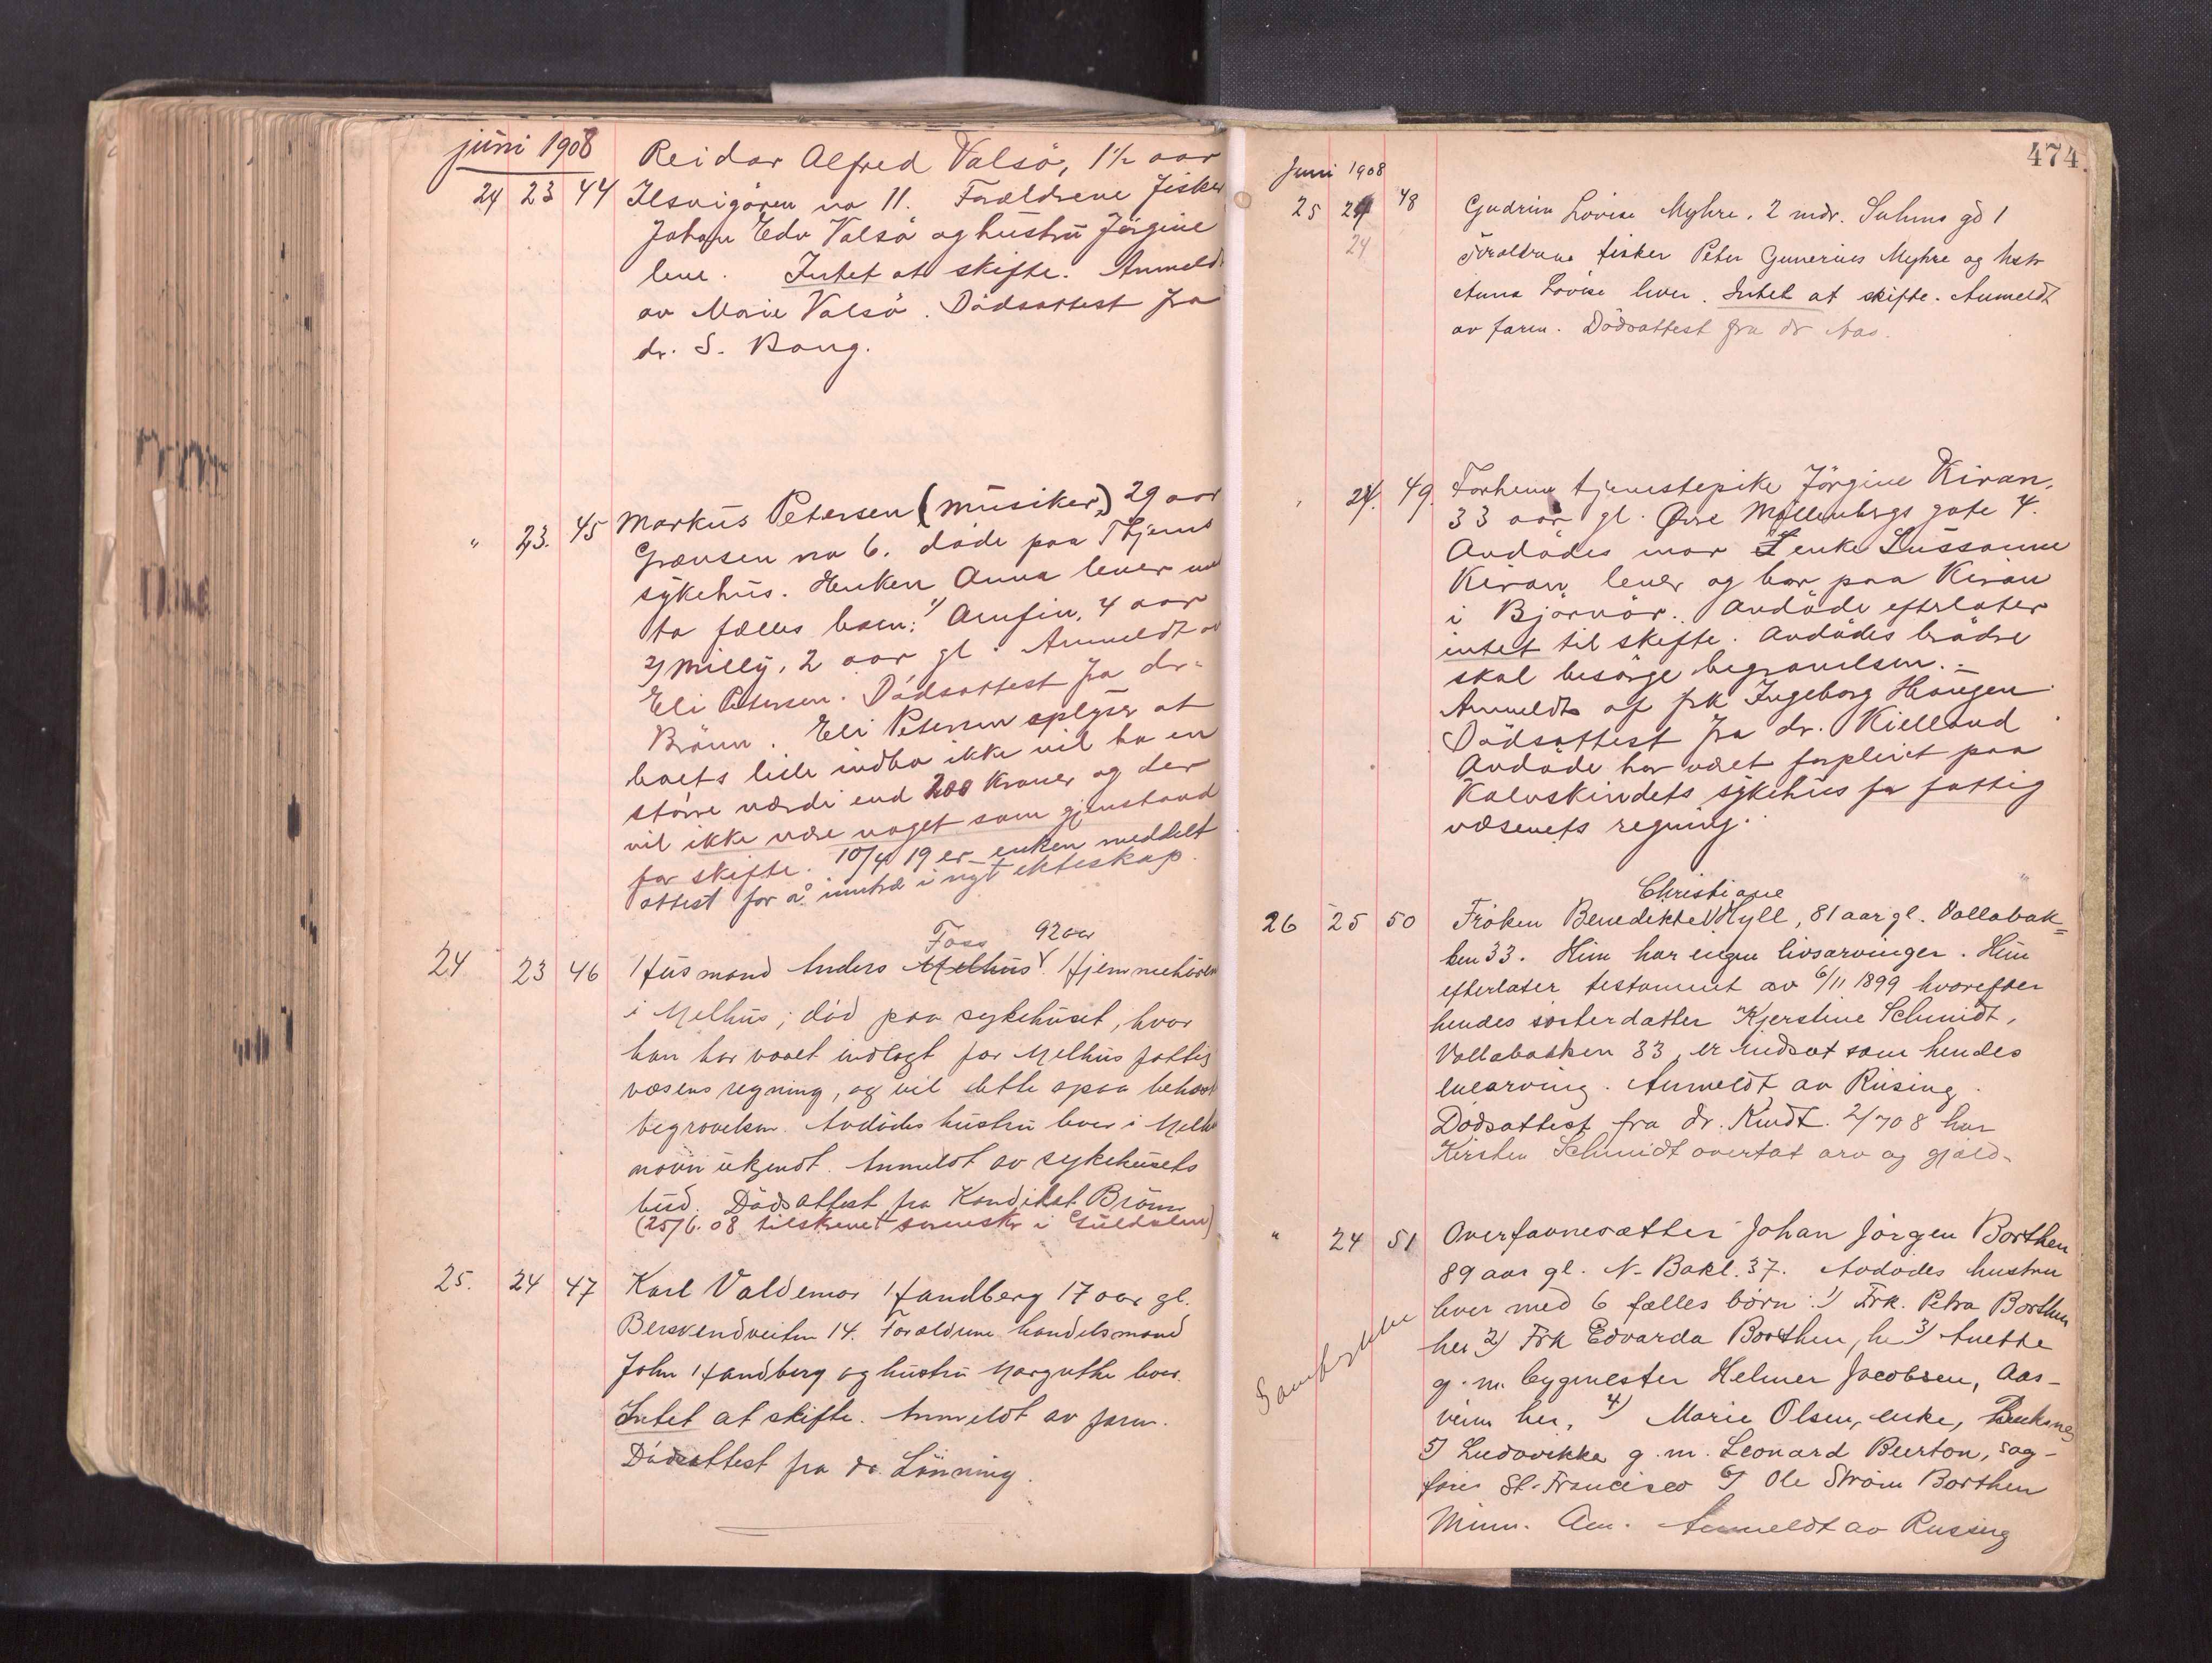 juni 1908
24 23 44 Reidar Alfred Valsö, 1½ aar
Ilsvigören no 11. Forældrene fisker
Johan Edv Valsö og hustru Jörgine
leve. Intet at skifte. Anmeldt
av Marie Valsö. Dödsattest fra
dr. S. Bang.
" 23. 45 Markus Petersen (musiker,) 29 aar
Grænsen no 6. döde paa Thjems
sykehus. Henken Anna lever med
to fælles barn: 1) Arnfin, 4 aar
2) Milly, 2 aar gl. Anmeldt av
Eli Petersen. Dödsattest fra dr.
Brönn. Eli Petersen oplyser at
boets lille indbo ikke vil ha en
större værdi end 200 Kroner og der
vil ikke være noget som gjenstand
for skifte. 10/4 19 er enken meddelt
attest for å inntræ i nyt ekteskap.
24 23 46 Husmand Anders Melhus Foss 92 aar. Hjemmehören
i Melhus; död paa sykehuset, hvor
han har vaaet indlagt for Melhus fattig
væsens regning, og vil dette ogsaa behos
begravelsen. Avdödes hustru lever i Melhus
navn ukjendt. Anmeldt av sykehusets
bud. Dödsattest fra Kandidat Brönn
(25/6.08 tilskrevet sorenskr i Guldalen)
25. 24 47 Karl Valdemar Sandberg 17 aar gl.
Berskendveiten 14. Forældrene handelsmand
John Sandberg og hustru Margrethe lever.
Intet at skifte. Anmeldt av faren.
Dödsattest fra dr. Lönning.
474
Juni 1908
25 24 48 Gudrun Lovise Myhre, 2 mdr. Suhms gd 1
24 Forældrene fisker Peter Gunerius Myhre og hstr
Anna Lovise lever. Intet at skifte. Anmeldt
av faren. Dödsattest fra dr Aas.
" 24. 49. Forhenv tjenestepike Jörgine Kiran,
33 aar gl. Övre Møllenbergs gate 4.
Avdödes mor enke Sussanne
Kiran lever og bor paa Kiran
i Björnör. Avdöde efterlater
intet til skifte. Avdödes brödre
skal besörge begravelsen.
Anmeldt af frk Ingeborg Haugen
Dödsattest fra dr. Kielland
Avdöde har været forpleiet paa
Kalvskindets sykehus for fattig
væsenets regning.
Christiane
26 25 50 Fröken Benedikte Hyll, 81 aar gl. Vollabak=
ken 33. Hun har ingen livsarvinger. Hun
efterlater testament av 6/11 1899 hvorefter
hendes sösterdatter Kjerstine Schmidt,
Vollabakken 33, er indsat som hendes
enearving. Anmeldt av Rusing.
Dödsattest fra dr. Kindt. 2/7 08 har
Kirsten Schmidt overtat arv og gjæld.
" 24 51 Overfavnesætter Johan Jörgen Borthen
89 aar gl. N. Bakl. 37. Avdödes hustru
lever med 6 fælles börn: 1) Frk. Petra Borthen
her 2) Frk Edvarda Borthen, he 3) Anette
g. m. bygmester Helmer Jacobsen, Aas-
veien her, 4) Marie Olsen, enke, Buksnes
5) Ludovikka g. m. Leonard Burton, sag-
förer St. Francisco 6) Ole Ström Borthen
Minn. Am. Anmeldt av Rusing